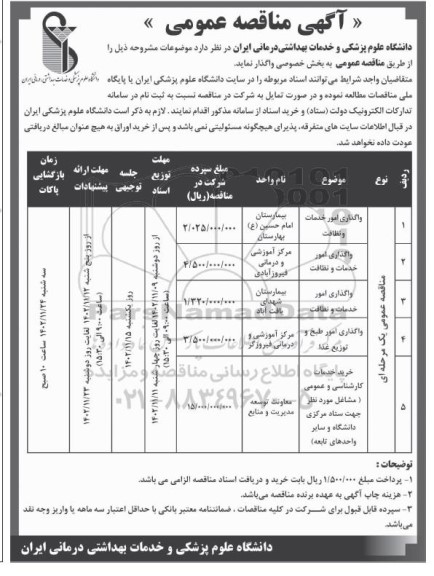 « آگهی مناقصه عمومی »
دانشگاه علوم پزشکی و خدمات بهداشتی درمانی ایران
دانشگاه علوم پزشکی و خدمات بهداشتی‌درمانی ایران در نظر دارد موضوعات مشروحه ذیل را
از طریق مناقصه عمومی به بخش خصوصی واگذار نماید.
متقاضیان واجد شرایط می‌توانند اسناد مربوطه را در سایت دانشگاه علوم پزشکی ایران یا پایگاه
ملی مناقصات مطالعه نموده و در صورت تمایل به شرکت در مناقصه نسبت به ثبت نام در سامانه
تدارکات الکترونیک دولت (ستاد) و خرید اسناد از سامانه مذکور اقدام نمایند . لازم به ذکر است دانشگاه علوم پزشکی ایران
در قبال اطلاعات سایت های متفرقه، پذیرای هیچگونه مسئولیتی نمی باشد و پس از خرید اوراق به هیچ عنوان مبالغ دریافتی
عودت داده نخواهد شد.
ردیف
نوع
موضوع
نام واحد
مبلغ سپرده شرکت در مناقصه(ریال)
مهلت توزیع اسناد
جلسه توجیهی
مهلت ارائه پیشنهادات
زمان بازگشایی پاکات
مناقصه عمومی یک مرحله ای
۱
واگذاری امور خدمات و نظافت
بیمارستان امام حسین (ع) بهارستان
۲/۰۲۵/۰۰۰/۰۰۰
۲
واگذاری امور خدمات و نظافت
مرکز آموزشی و درمانی فیروزآبادی
۴/۵۰۰/۰۰۰/۰۰۰
۳
واگذاری امور خدمات و نظافت
بیمارستان شهدای یافت آباد
۱/۳۲۰/۰۰۰/۰۰۰
۴
واگذاری امور طبخ و توزیع غذا
مرکز آموزشی و درمانی فیروزگر
۳/۵۰۰/۰۰۰/۰۰۰
۵
خرید خدمات کارشناسی و عمومی ( مشاغل مورد نظر جهت ستاد مرکزی دانشگاه و سایر واحدهای تابعه)
معاونت توسعه مدیریت و منابع
۱۵/۰۰۰/۰۰۰/۰۰۰
از روز دوشنبه ۱۴۰۲/۱۱/۰۹ لغایت روز چهارشنبه ۱۴۰۲/۱۱/۱۱
(ساعت ۰۹:۰۰ الی ۱۵:۳۰)
روز یکشنبه ۱۴۰۲/۱۱/۱۵
از روز پنج شنبه ۱۴۰۲/۱۱/۱۲ لغایت روز دوشنبه ۱۴۰۲/۱۱/۲۳
(ساعت ۰۹:۰۰ الی ۱۵:۳۰)
سه شنبه ۱۴۰۲/۱۱/۲۴ ساعت ۱۰ صبح
پایگاه اطلاع رسانی مناقصه و مزایده
۰۲۱-۸۸۳۴۹۶۷۰
توضیحات :
۱- پرداخت مبلغ ۱/۵۰۰/۰۰۰ ریال بابت خرید و دریافت اسناد مناقصه الزامی می باشد.
۲- هزینه چاپ آگهی به عهده برنده مناقصه می‌باشد.
۳- سپرده قابل قبول برای شرکت در کلیه مناقصات ، ضمانتنامه معتبر بانکی با حداقل اعتبار سه ماهه یا واریز وجه نقد
می‌باشد.
دانشگاه علوم پزشکی و خدمات بهداشتی درمانی ایران